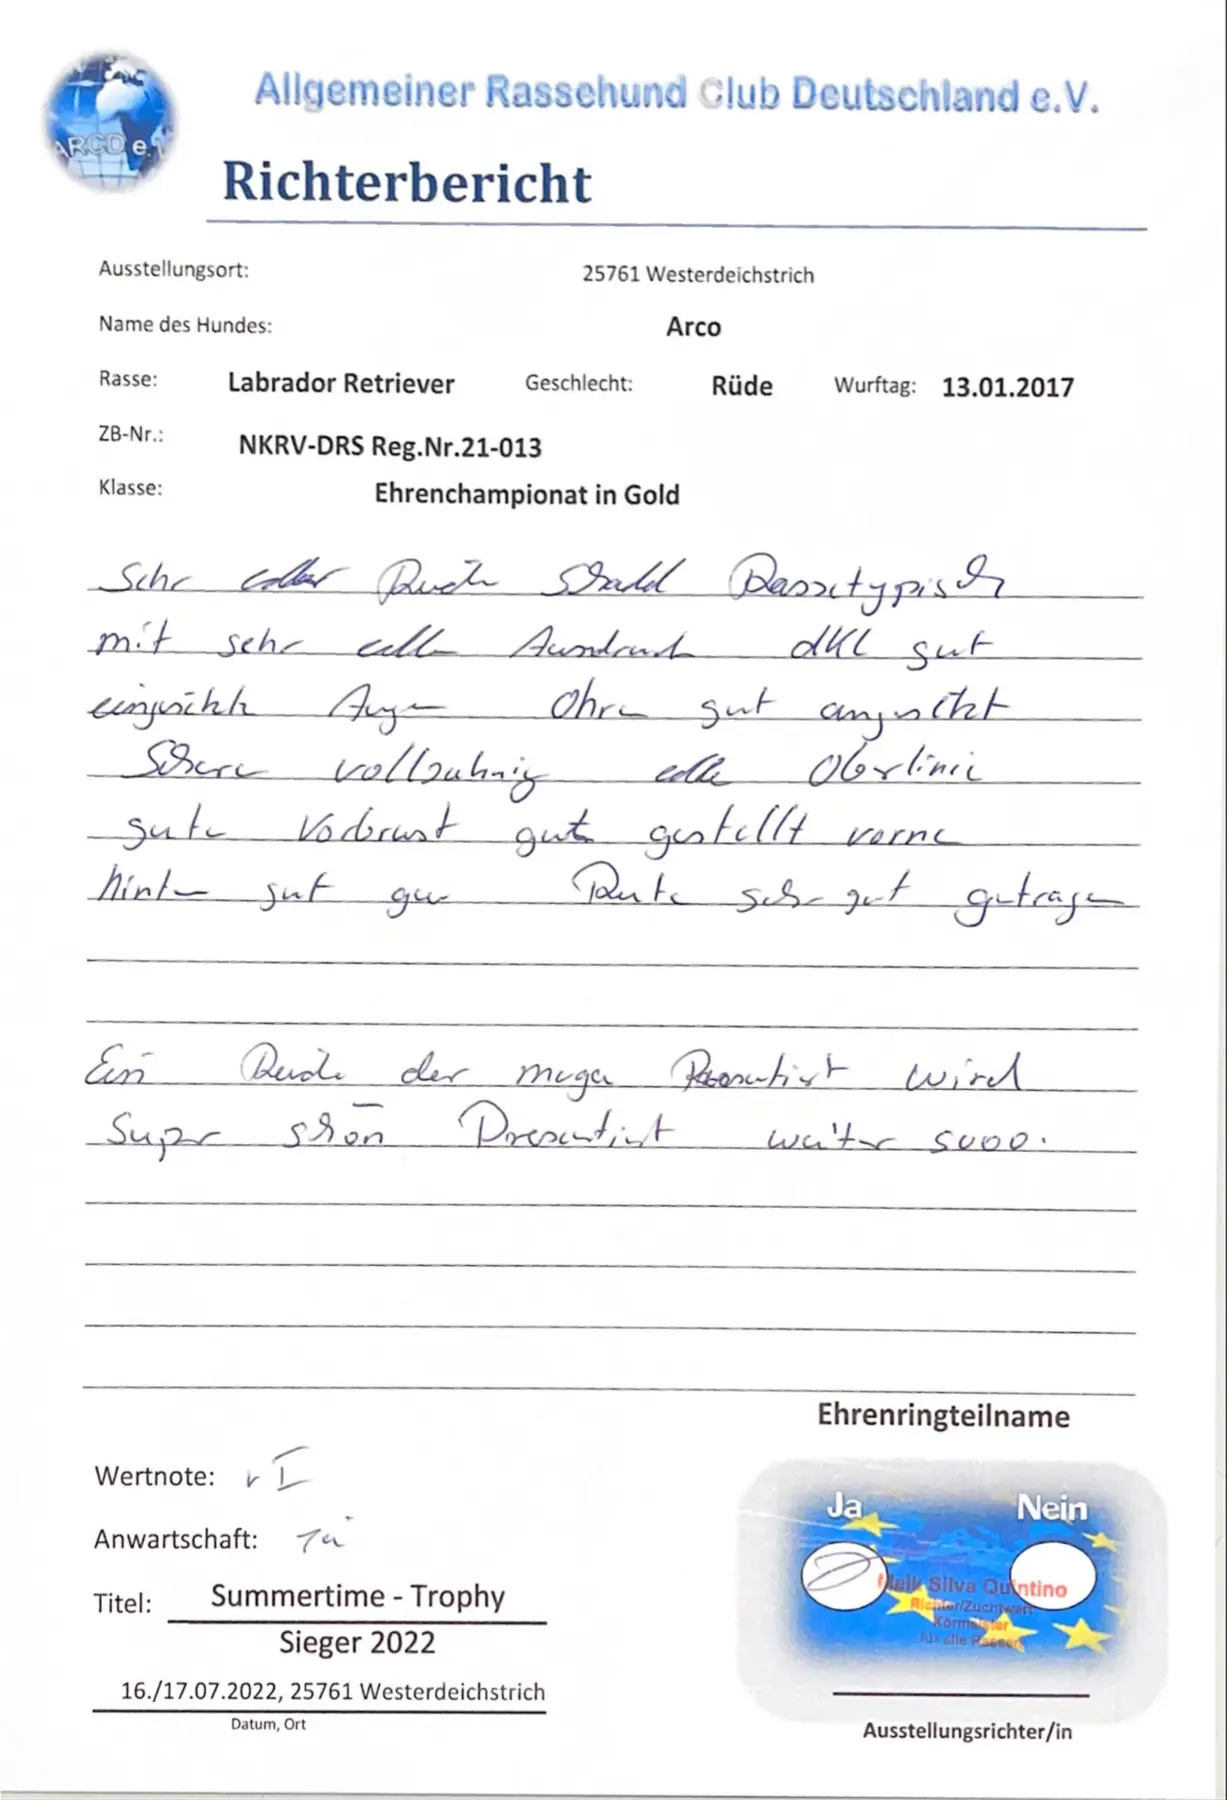 ARCD e.V
Allgemeiner Rassehund Club Deutschland e.V.
Richterbericht
Ausstellungsort: 25761 Westerdeichstrich
Name des Hundes: Arco
Rasse: Labrador Retriever Geschlecht: Rüde Wurftag: 13.01.2017
ZB-Nr.: NKRV-DRS Reg.Nr.21-013
Klasse: Ehrenchampionat in Gold
Sehr edler Rüde Rassetypisch
mit sehr edlen Ausdruck dkl gut
eingesetzte Augen Ohren gut angesetzt
Schere vollzahnig edle Oberlinie
gute Vorbrust gut gestellt vorne
hinten gut Rute sehr gut getragen
Ein Rüde der mega Präsentiert wird
Super schön Presentiert weiter sooo.
Ehrenringteilname
Wertnote: v I
Anwartschaft: Ja
Ja Nein
Meik Silva Quintino
Richter/Zuchtwart
Körmeister
für alle Rassen
Titel: Summertime - Trophy
Sieger 2022
16./17.07.2022, 25761 Westerdeichstrich
Datum, Ort
Ausstellungsrichter/in